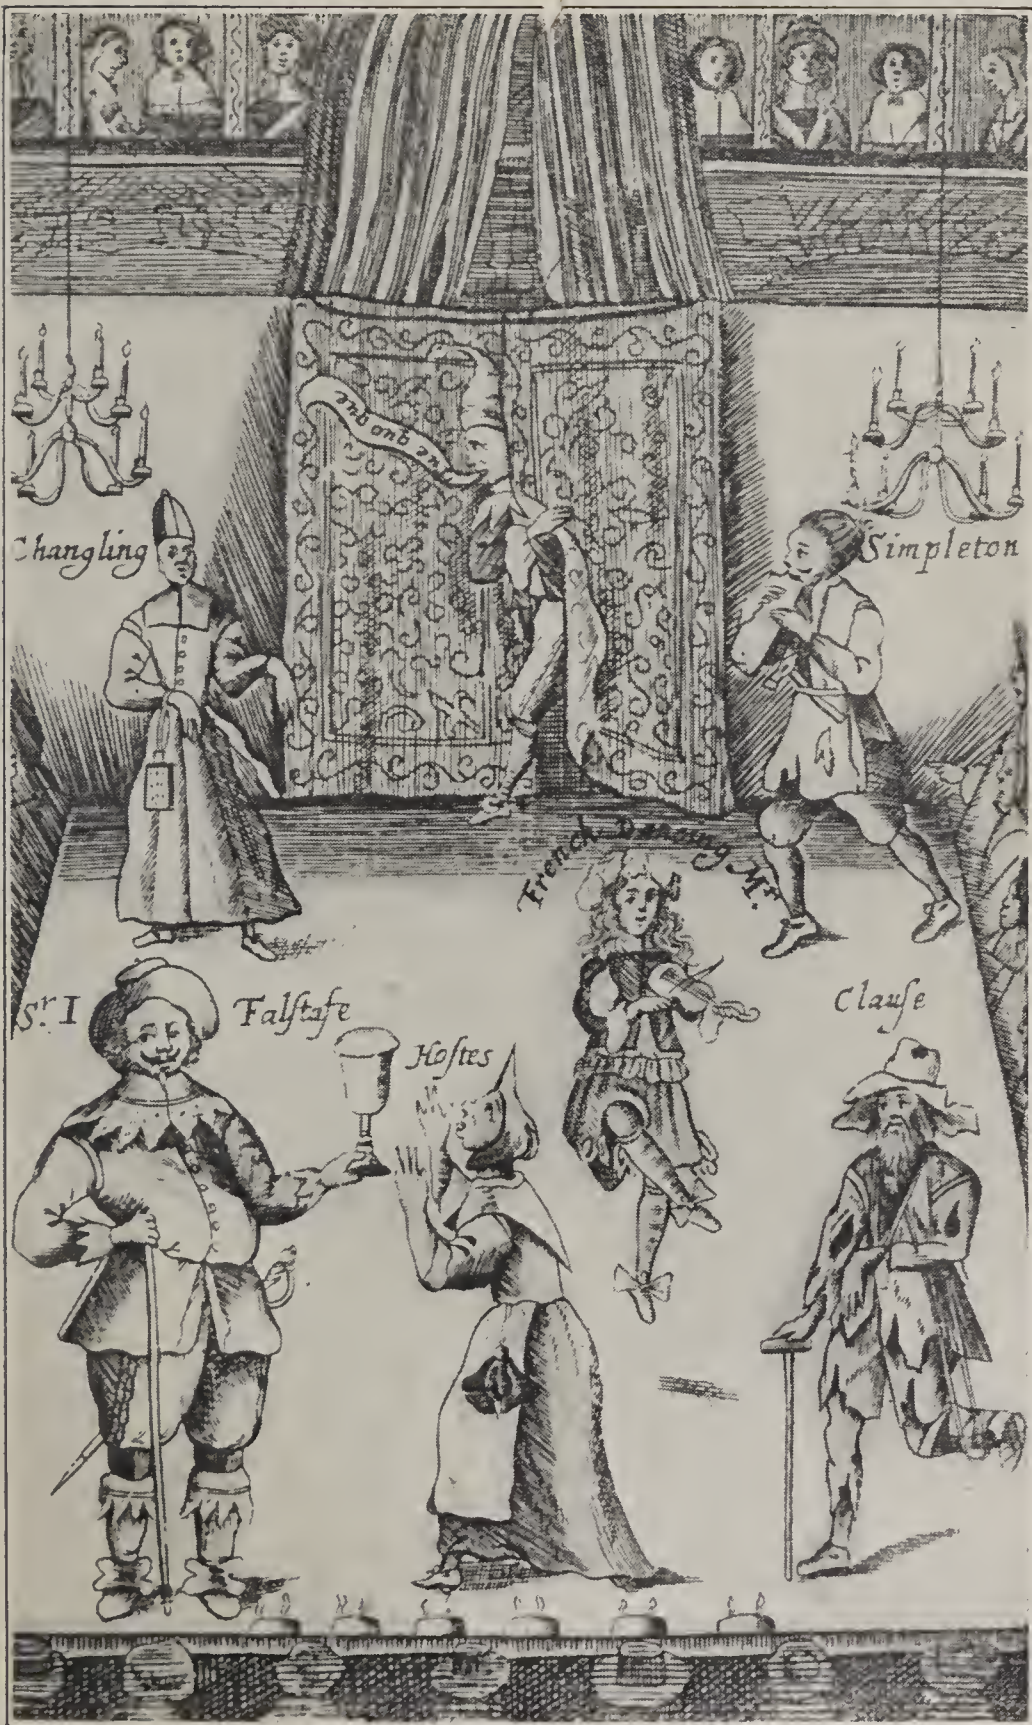 Changling
Simpleton
French Dancing Mr.
Sr. I Falſtafe
Hoſtes
Clauſe